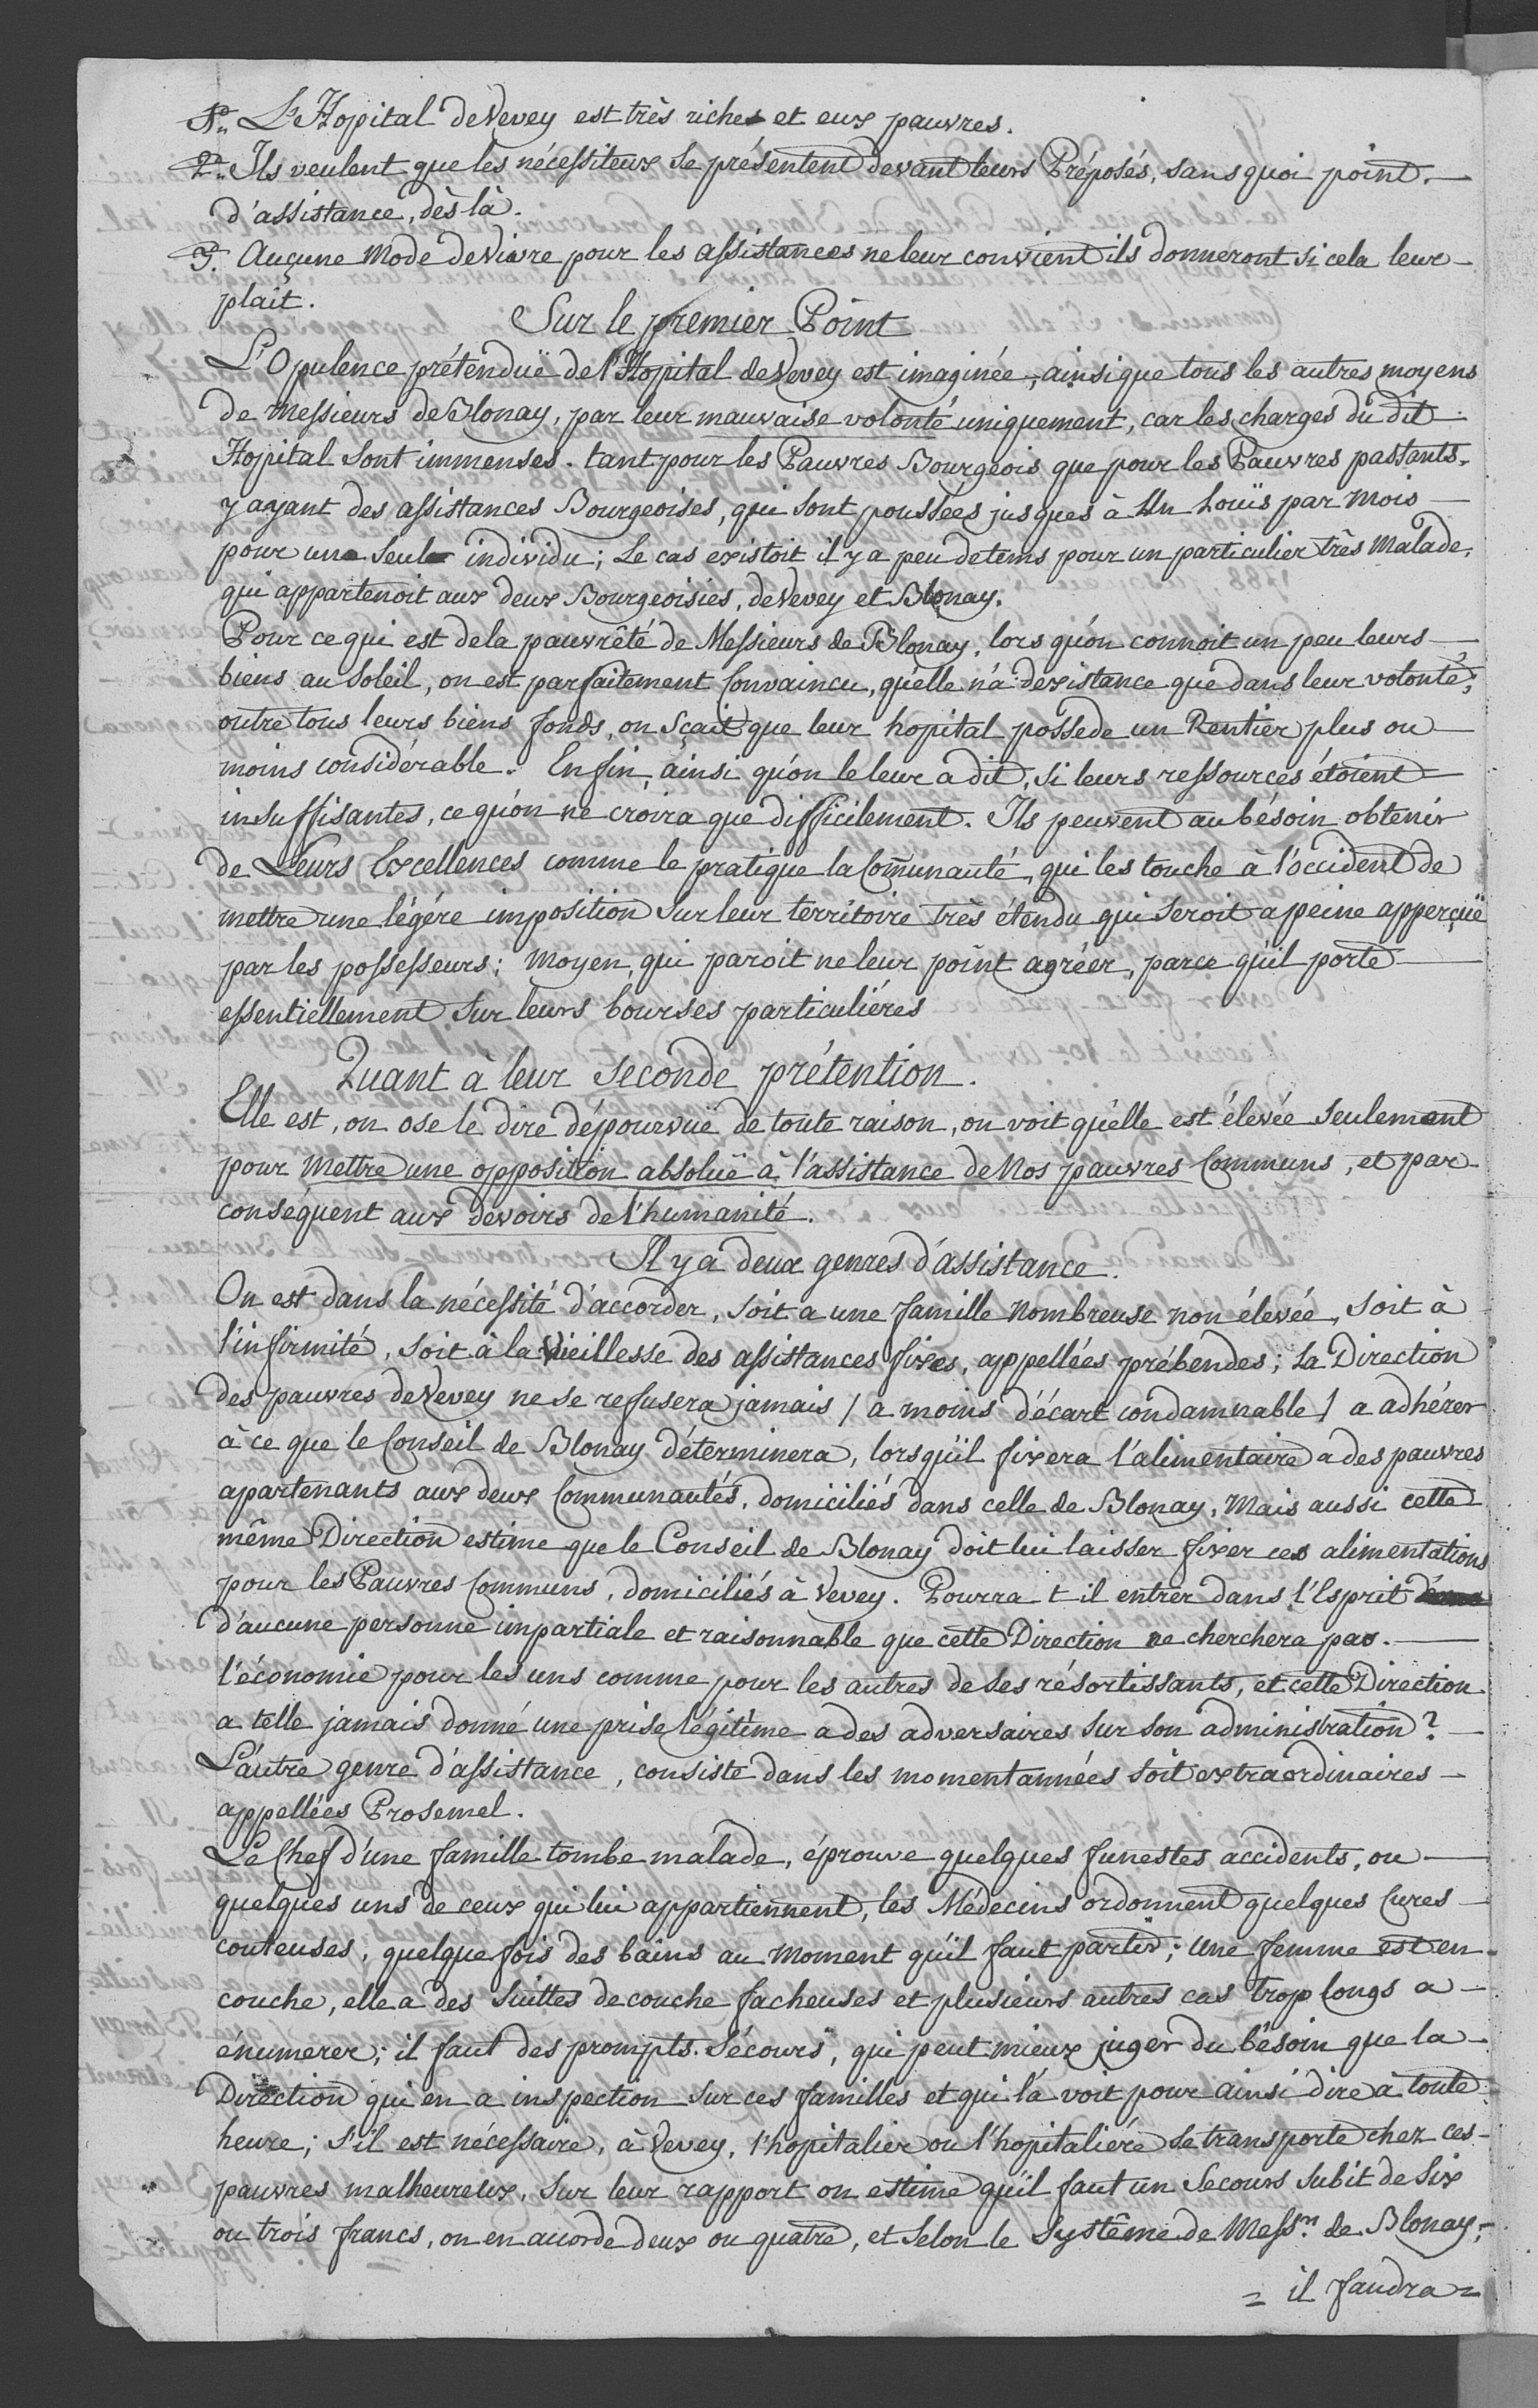 1°. L'Hopital de Vevey est très riche et eux pauvres.
2°. Ils veulent que les nécessiteux se présentent devant leurs Préposés, sans quoi point.
d'assistance, dès là.
3°. Aucune mode de vivre pour les assistances ne leur convient ils donneront si cela leur
plait.
Sur le premier Point
L'Opulence prétenduë de l'Hopital de Vevey est imaginée, ainsi que tous les autres moyens
de Messieurs de Blonay, par leur mauvaise volonté uniquement, car les charges du dit
Hopital sont immenses. tant pour les Pauvres Bourgeois que pour les Pauvres passants.
y ayant des assistances Bourgeoises, qui sont poussées jusques à Un Louïs par mois
pour un seul individu; Le cas existoit il y a peu de tems pour un particulier très malade,
qui appartenoit aux deux Bourgeoisies, de Vevey et Blonay.
Pour ce qui est de la pauvrêté de Messieurs de Blonay, lors qu'on connoit un peu leurs
biens au soleil, on est parfaitement Convaincu, quelle n'a dexistance que dans leur volonté;
outre tous leurs biens fonds, on sçait que leur hopital possede un Rentier plus ou
moins considérable. Enfin, ainsi qu'on le leur a dit, si leurs ressources étoient
insuffisantes, ce qu'on ne croira que difficilement. Ils peuvent au bésoin obtenir
de Leurs Excellences comme le pratique la Com̃unauté, qui les touche à l'occident de
mettre une légére imposition sur leur territoire très étendu qui seroit a peine apperçuë
par les possesseurs; moyen, qui paroit ne leur point agréer, parce qu'il porte
essentiellement sur leurs bourses particuliéres
Quant à leur seconde prétention.
Elle est, on ose le dire dépourvuë de toute raison, on voit qu'elle est élevée seulement
pour mettre une opposition absoluë à l'assistance de Nos pauvres Communs, et par
conséquent aux devoirs de l'humanité.
Il y a deux genres d'assistance.
On est dans la nécessité d'accorder, soit a une famille nombreuse non élevée, soit à
l'infirmité, soit à la vieillesse des assistances fixes, appellées prébendes; La Direction
des pauvres de Vevey ne se refusera jamais / a moins d'écart condamnable / a adhérer
à ce que le Conseil de Blonay déterminera, lorsqu'il fixera l'alimentaire a des pauvres
apartenants aux deux Communautés, domiciliés dans celle de Blonay, Mais aussi cette
même Direction estime que le Conseil de Blonay doit lui laisser fixer ces alimentations
pour les Pauvres Communs, domiciliés à Vevey. Pourra t il entrer dans l'Esprit
d'aucune personne impartiale et raisonnable que cette Direction ne cherchera pas.
l'économie pour les uns comme pour les autres de ses résortissants, et cette Direction
a telle jamais donné une prise légitime a des adversaires sur son administration?
L'autre genre d'assistance, consiste dans les momentannées soit extraordinaires
appellées Prosemel.
Le Chef d'une famille tombe malade, éprouve quelques funestes accidents, ou
quelques uns de ceux qui lui appartiennent, les Médecins ordonnent quelques Cures
couteuses, quelque fois des bains au moment qu'il faut partir; Une femme est en
couche, elle a des suittes de couche facheuses et plusieurs autres cas trop longs a
énumérer; il faut des prompts sécours, qui peut mieux juger du bésoin que la
Direction qui en a inspection sur ces familles et qui la voit pour ainsi dire à toute
heure; s'il est nécessaire, à Vevey, l'hopitalier ou l'hopitaliére se transporte chez ces
pauvres malheureux, sur leur rapport on estime qu'il faut un Secours subit de six
ou trois francs, on en accorde deux ou quatre, et selon le systême de Mess.rs de Blonay;
= il faudra =